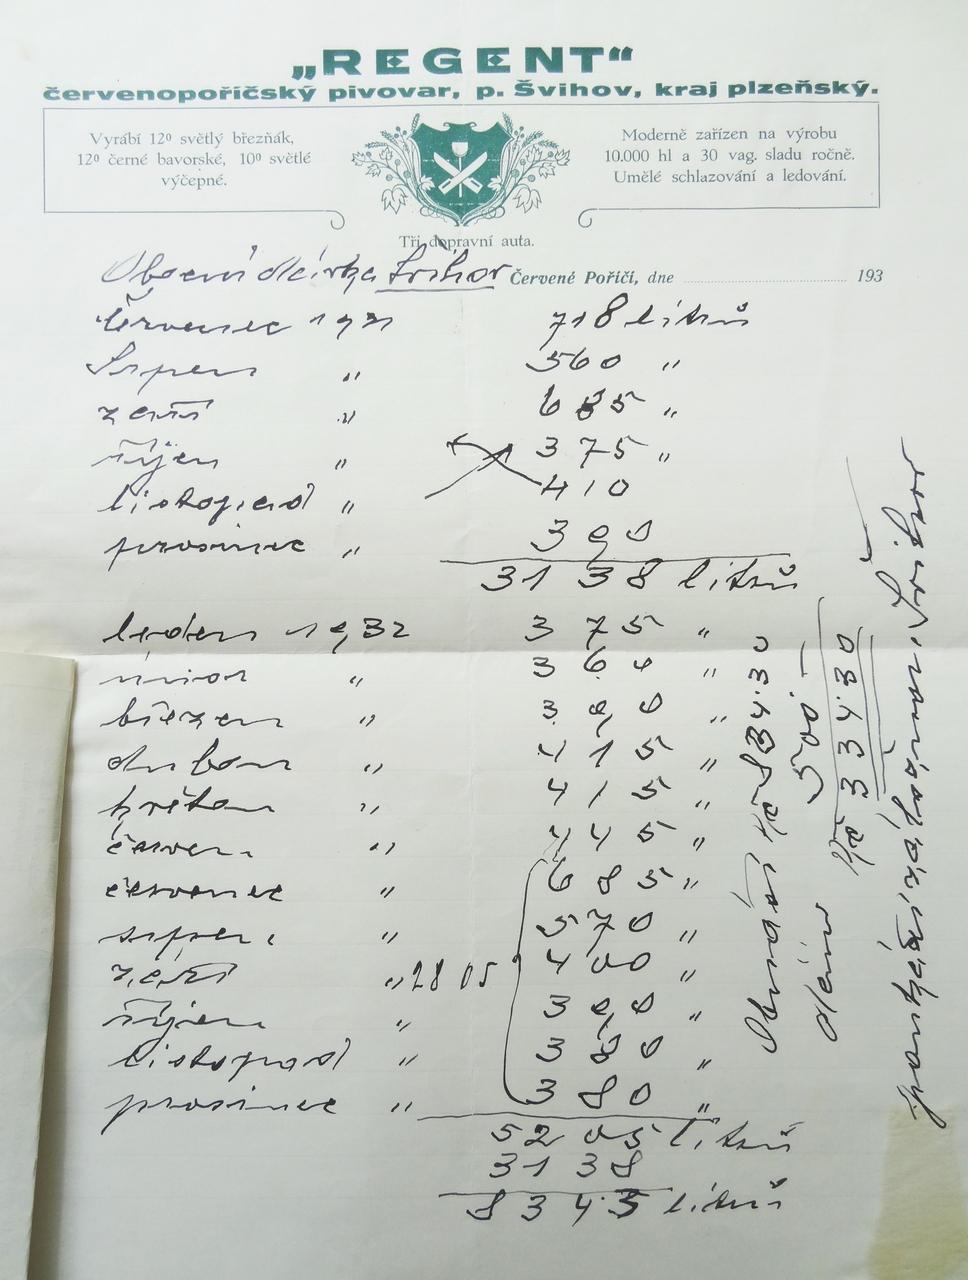 „REGENT“
červenopoříčský pivovar, p. Švihov, kraj plzeňský.
Vyrábí 12⁰ světlý březňák,
12⁰ černé bavorské, 10⁰ světlé
výčepné.
Moderně zařízen na výrobu
10.000 hl a 30 vag. sladu ročně.
Umělé schlazování a ledování.
Tři dopravní auta.
Obecní dávka Švihov Červené Poříčí, dne 193
Červenec 1931 718 litrů
Srpen „ 560 „
září „ 685 „
říjen „ 375 „
listopad „ 410
prosinec „ 390
3138 litrů
leden 1932 375 „
únor „ 360 „
březen „ 390 „
duben „ 415 „
květen „ 415 „
červen „ 445 „
červenec „ 685 „
srpen „ 570 „
září „ 2805 400 „
říjen „ 390 „
listopad „ 380 „
prosinec „ 380 „
5205 litrů
3138
8343 litrů
Obnáší Kč 834.30
500.–
Kč 334.30
Švihov